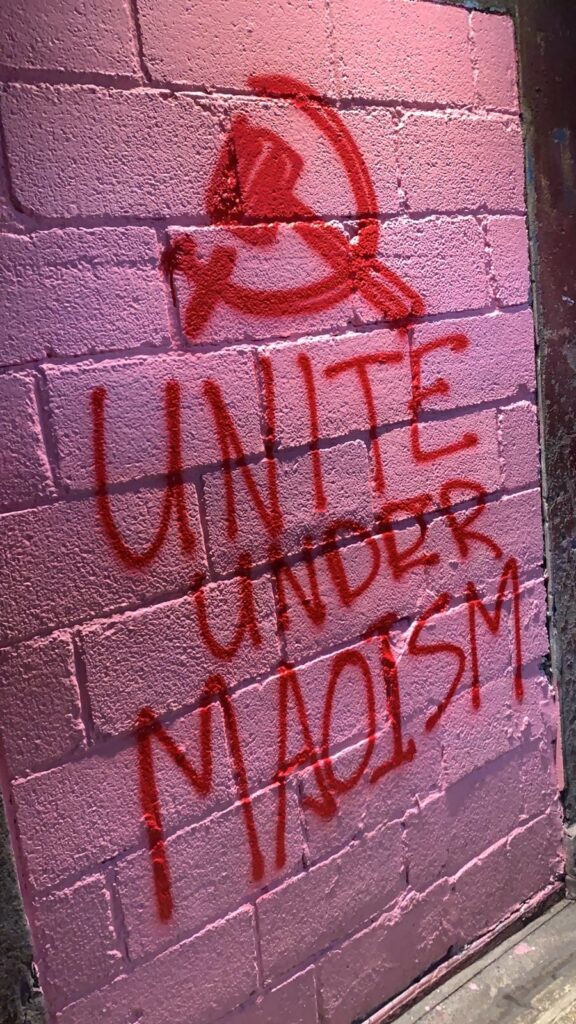 UNITE
UNDER
MAOISM